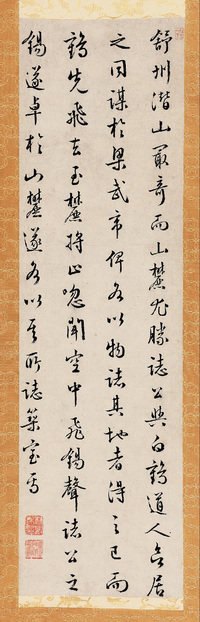 舒州潛山最奇而山麓尤勝誌公與白鶴道人欲居
之同謀於梁武帝俾各以物誌其地者得之已而
鶴先飛去至麓將止忽聞空中飛錫聲誌公之
錫遂卓於山麓遂各以其所誌築室焉